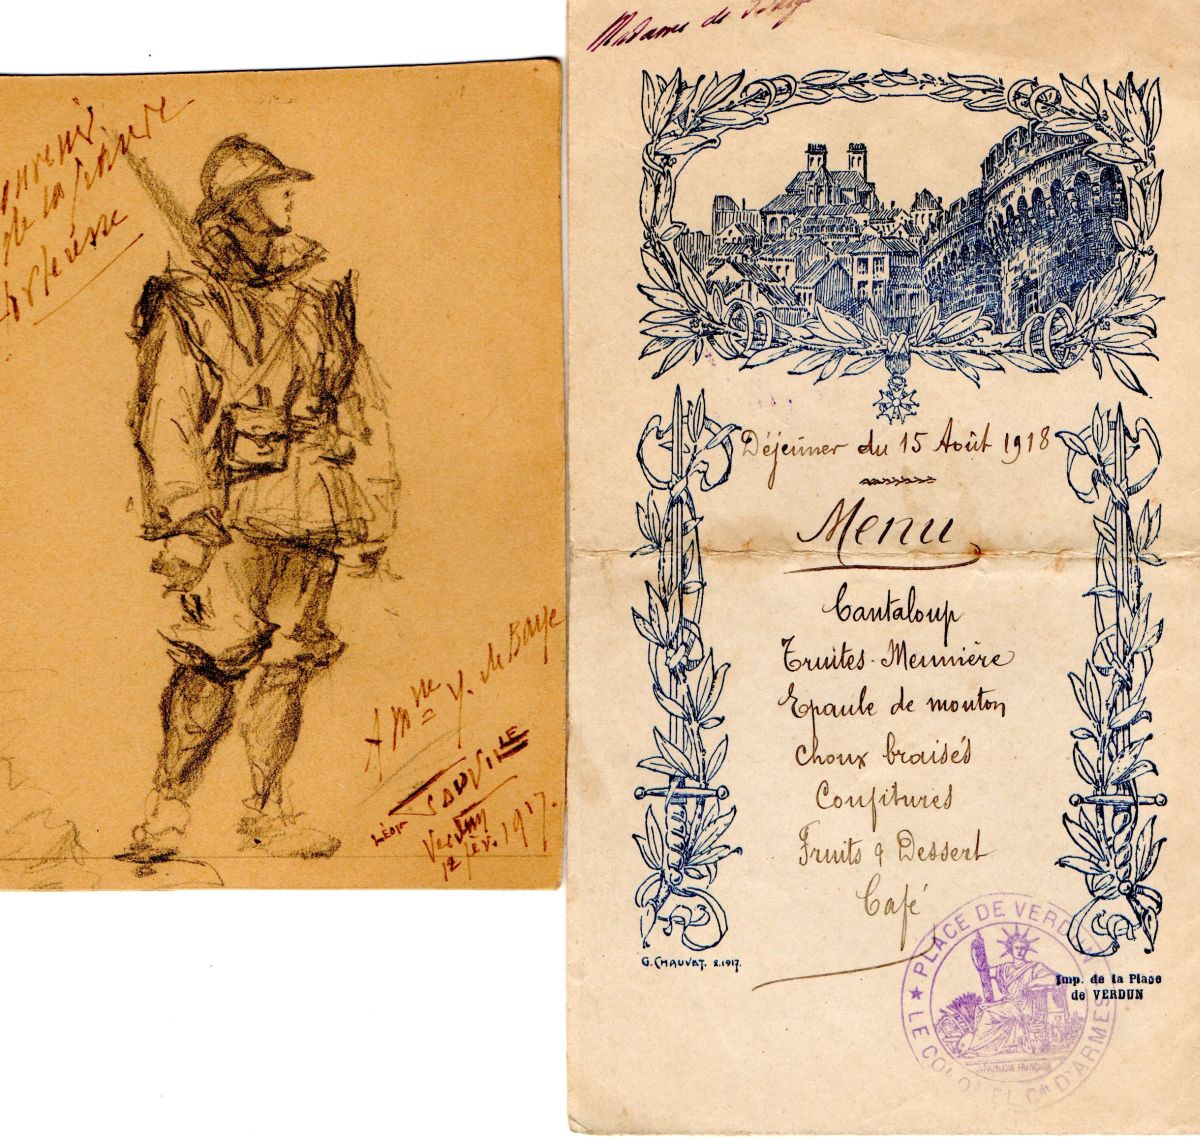 Souvenir
de la grande
forteresse
A Mme Y. de Baye
Léon
VILLE
Verdun
12 fév. 1917.
Madame de Baye
Déjeuner du 15 Août 1918
Menu
Cantaloup
Truites-Meunière
Epaule de mouton
choux braisés
Confitures
Fruits & Dessert
Café
G. CHAUVET. 2.1917.
Imp. de la Place
de VERDUN
★ PLACE DE VERDUN
LE COLONEL Ct D'ARMES
RÉPUBLIQUE FRANÇAISE